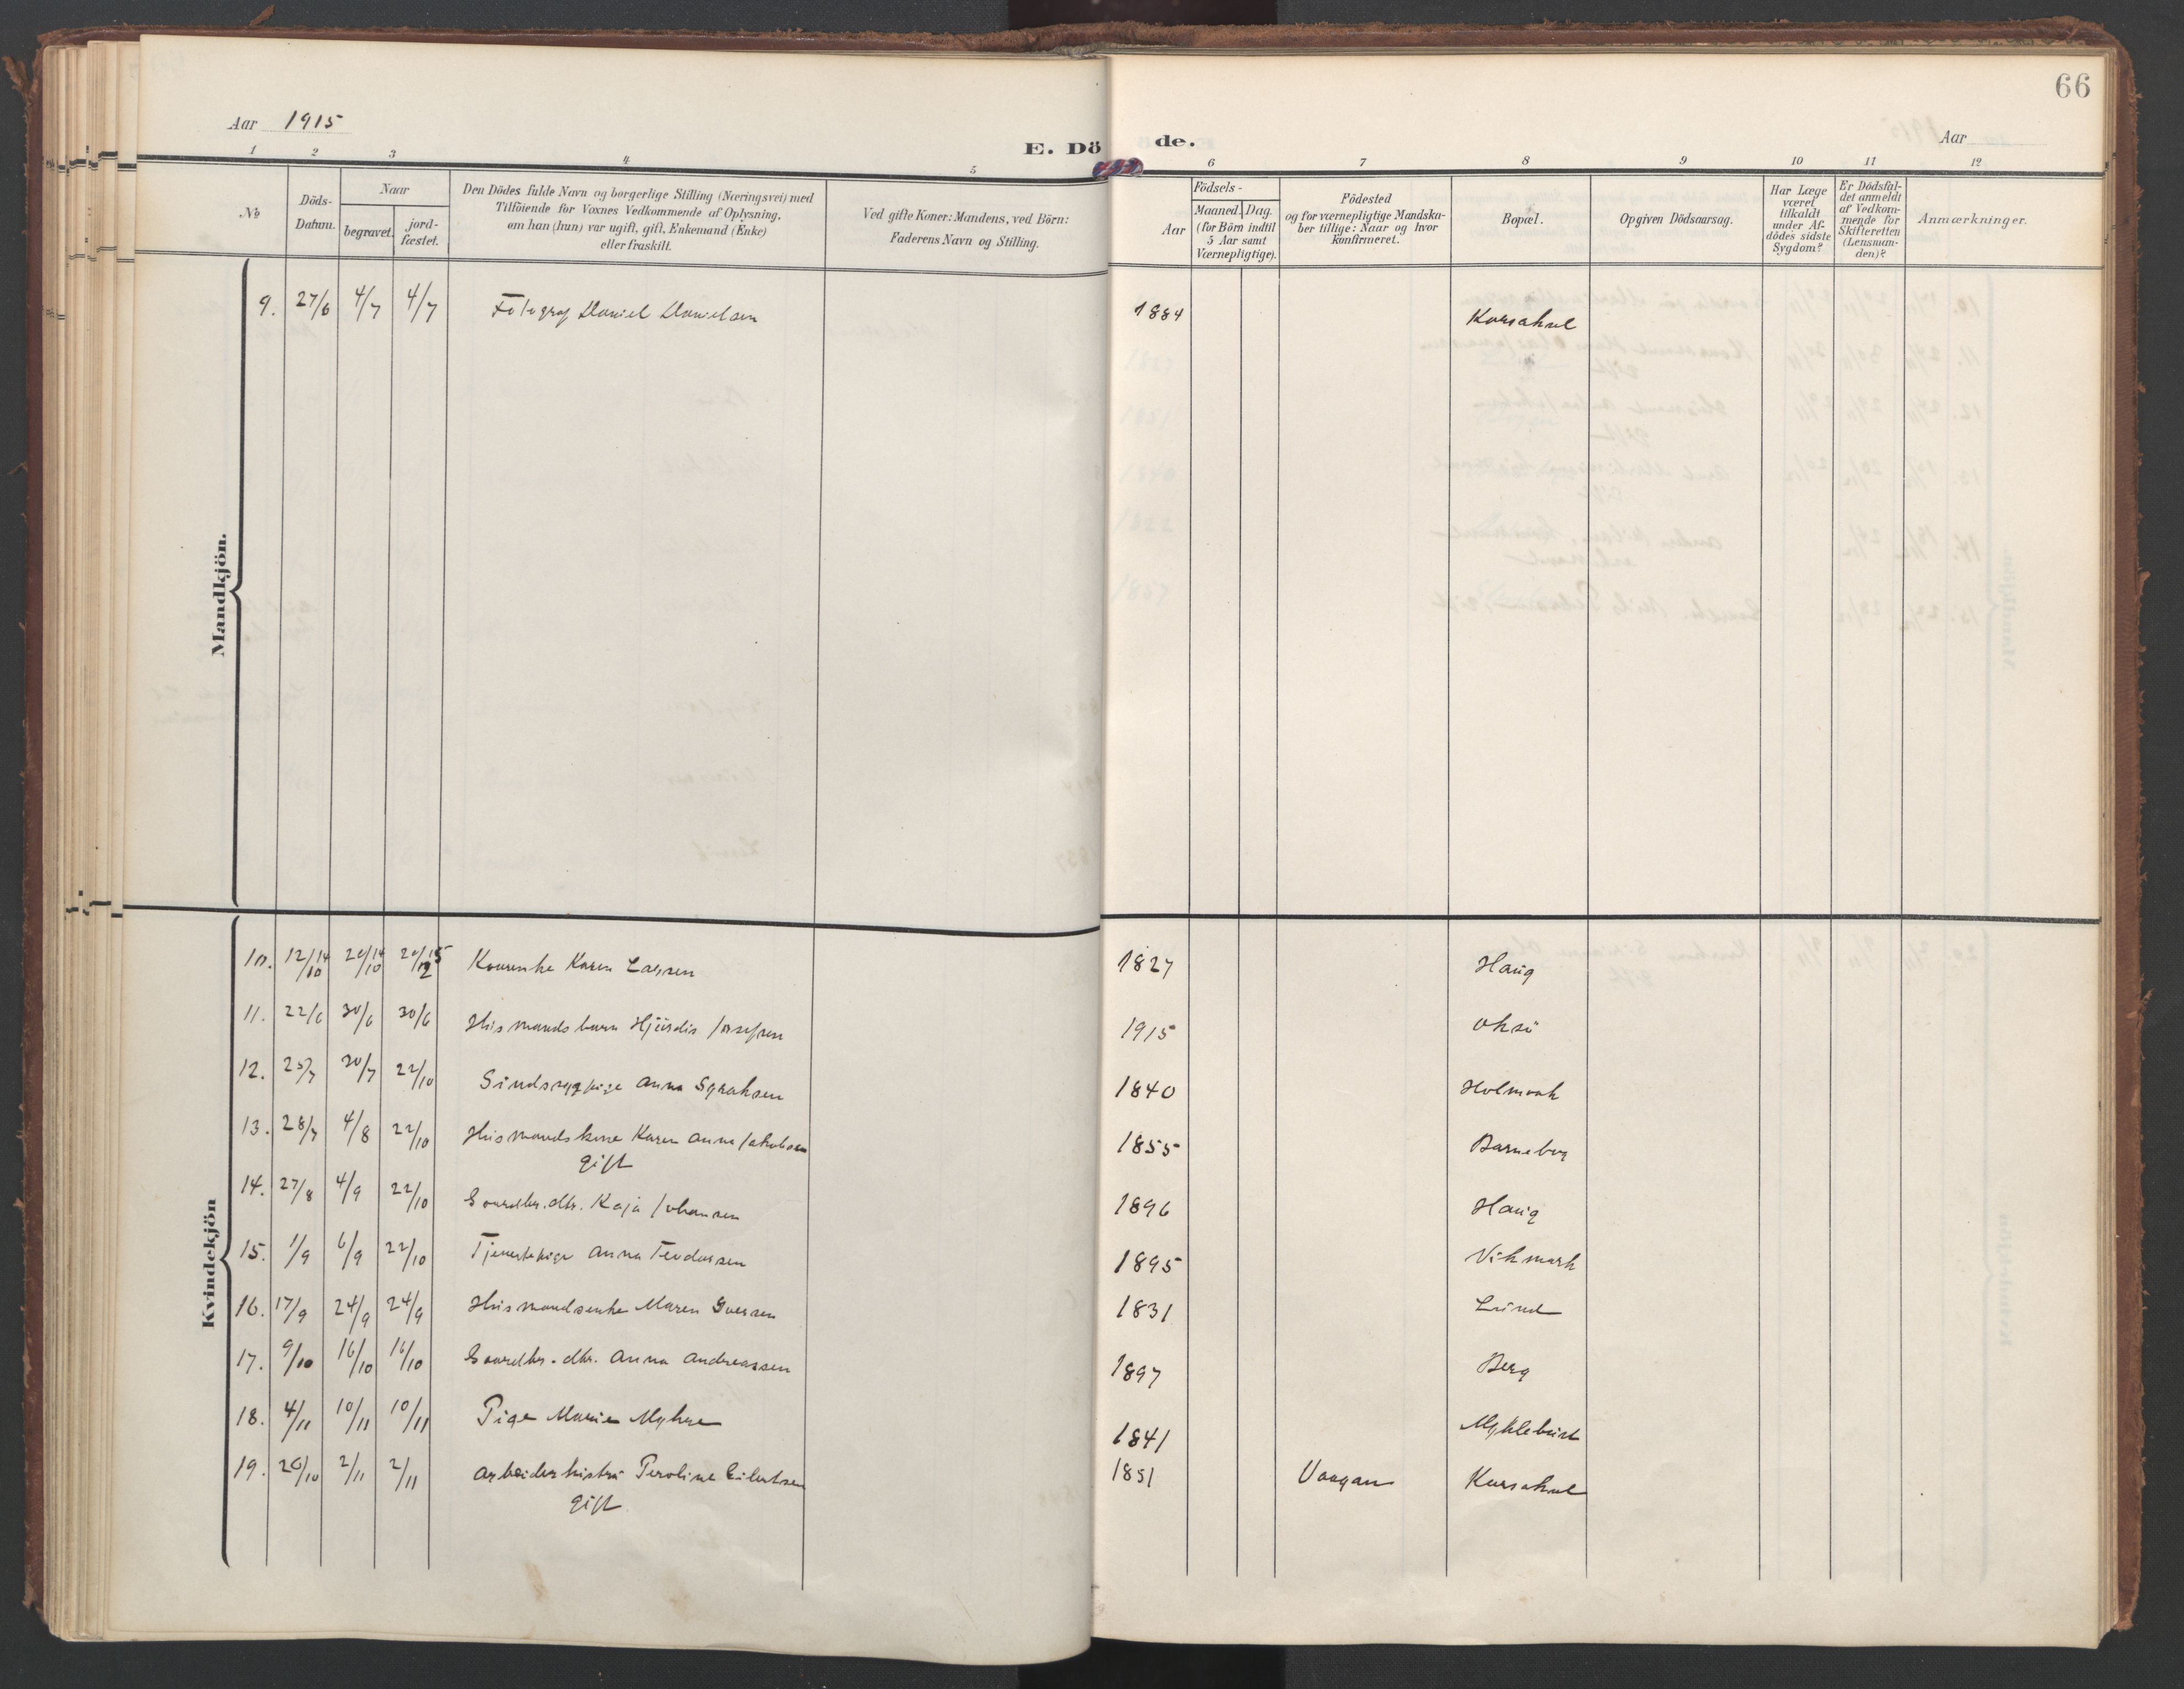 66
Aar 1915
E. Dö de.
Aar
1 2 3 4 5 6 7 8 9 10 11 12
№
Döds-
Datum.
Naar
begravet.
jord-
fæstet.
Den Dödes fulde Navn og borgerlige Stilling (Næringsvei) med
Tilföiende for Voxnes Vedkommende af Oplysning,
om han (hun) var ugift, gift, Enkemand (Enke)
eller fraskilt.
Ved gifte Koner: Mandens, ved Börn:
Faderens Navn og Stilling.
Födsels-
Aar
Maaned. Dag.
(for Börn indtil
5 Aar samt
Værnepligtige).
Födested
og for værnepligtige Mandska-
ber tillige: Naar og hvor
konfirmeret.
Bopæl.
Opgiven Dödsaarsag.
Har Læge
været
tilkaldt
under Af-
dödes sidste
Sygdom?
Er Dödsfal-
det anmeldt
af Vedkom-
mende for
Skifteretten
(Lensman-
den)?
Anmærkninger.
Mandkjön.
9. 27/6 4/7 4/7 Fotograf Daniel Danielsen 1884
Kvindekjön
10. 12/10 14 20/10 14 20/12 15 Kaarenke Karen Larsen 1827 Haug
11. 22/6 30/6 30/6 Husmandsbarn Hjördis Josefsen 1915
12. 25/7 30/7 22/10 Sindssygpige Anna 1840 Holmvak
13. 28/7 4/8 22/10 Husmandskone Karen Anna Jakobsen 1855 Barnebog
gift
14. 27/8 4/9 22/10 Gaardbr. dtr. Kaja Johansen 1896 Haug
15. 1/9 6/9 22/10 Tjenestepige Anna Teodorsen 1895 Vikmark
16. 17/9 24/9 24/9 Husmandsenke Maren Iversen 1831 Lund
17. 9/10 16/10 16/10 Gaardbr. dtr. Anna Andreassen 1897 Berg
18. 4/11 10/11 10/11 Pige Marie Myhre 1841 Myklebust
19. 26/10 2/11 2/11 Arbeiderhustru Peroline Eilertsen 1851 Vaagan
gift